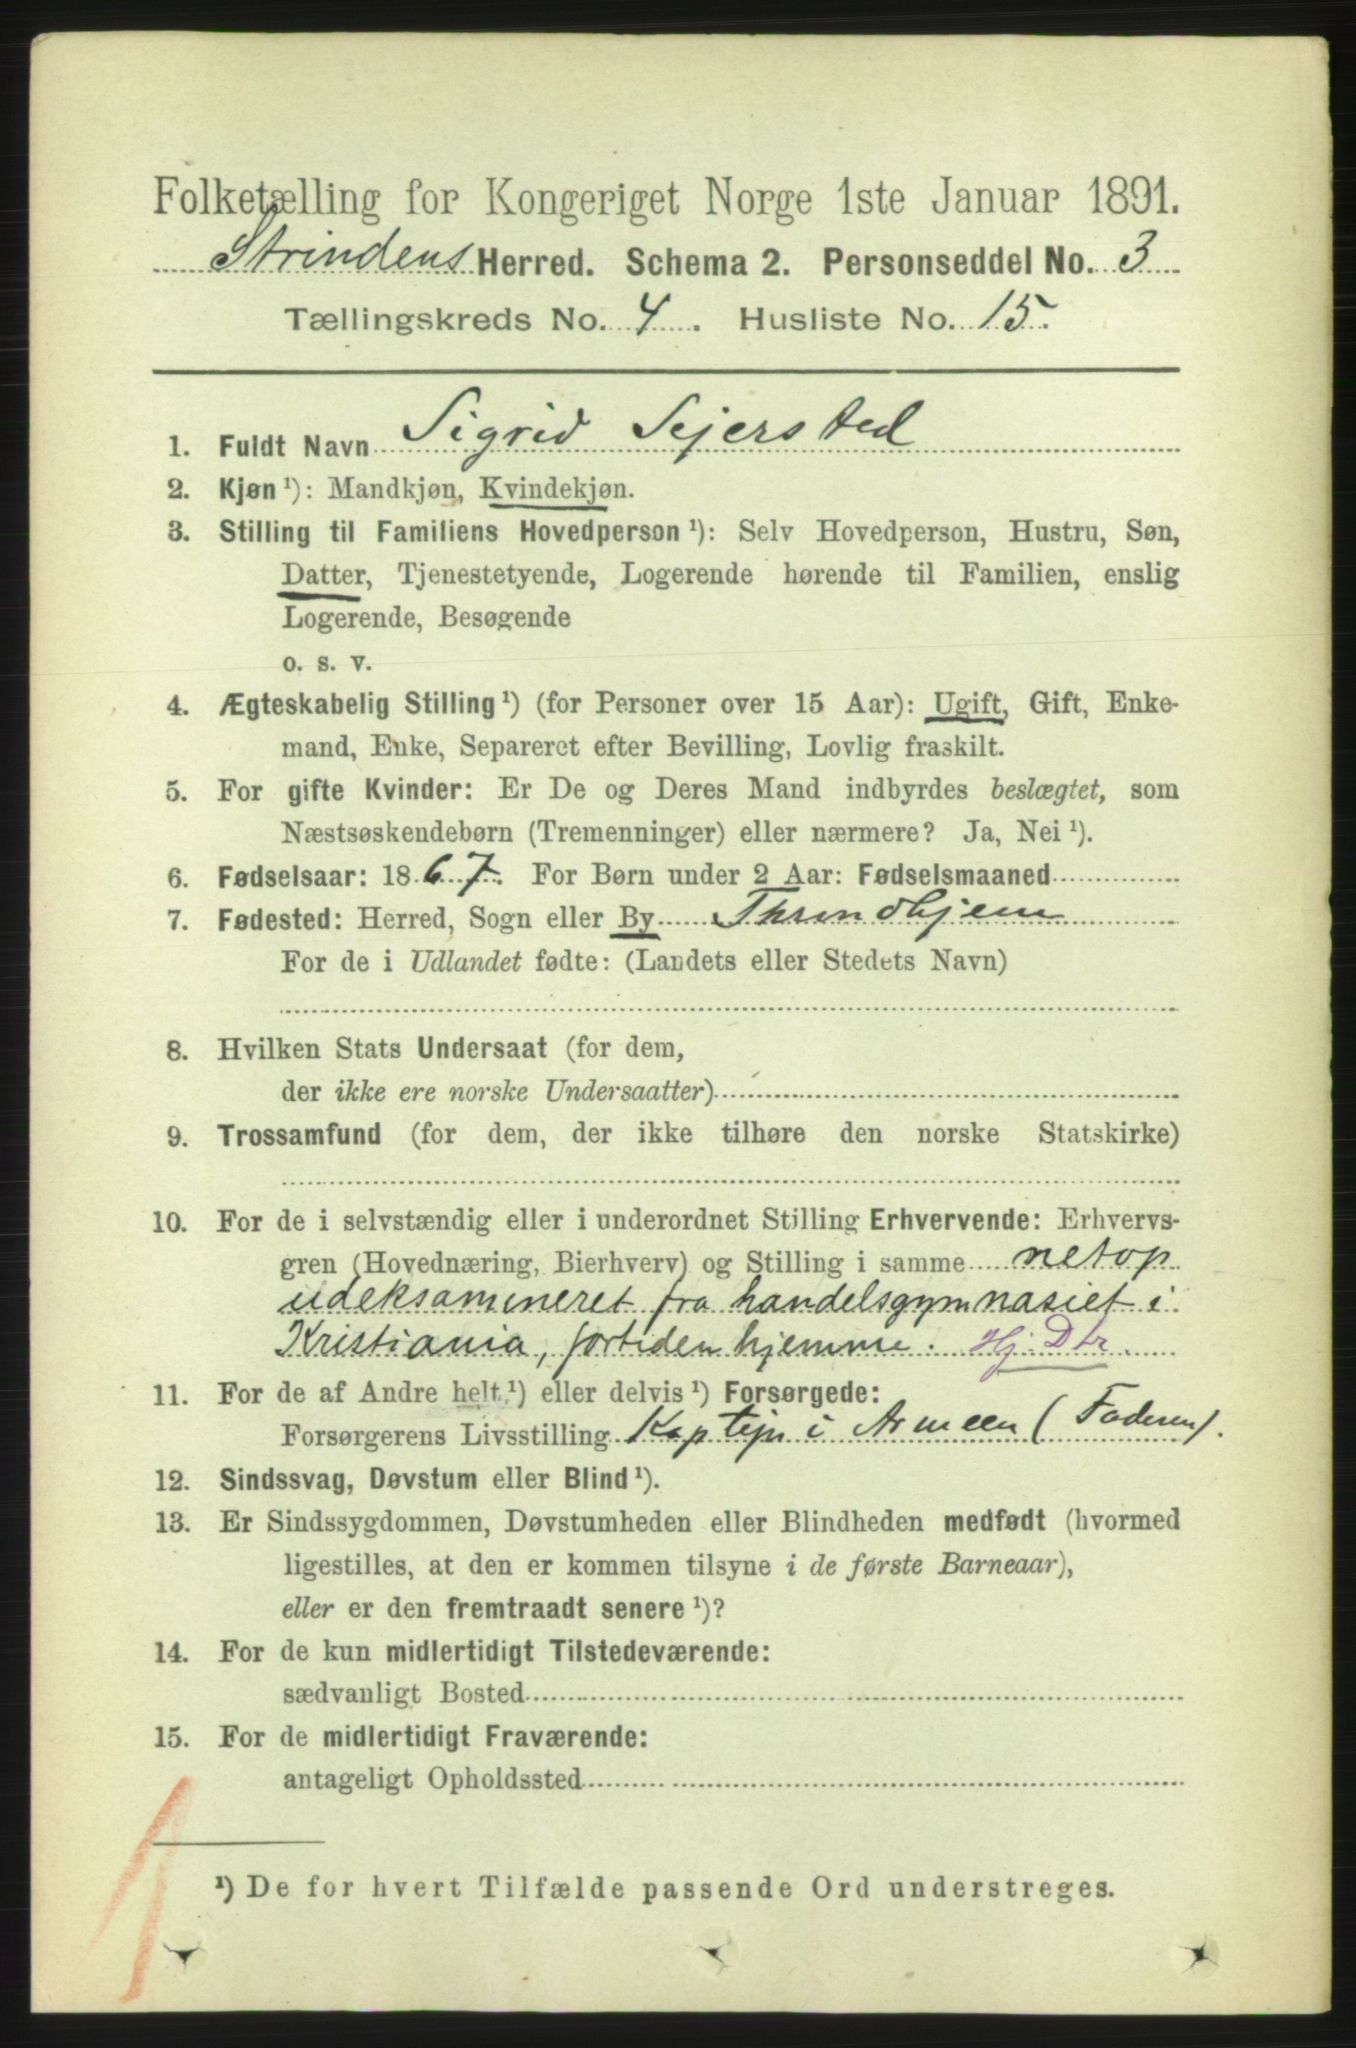 Folketælling for Kongeriget Norge 1ste Januar 1891.
Strindens Herred. Schema 2. Personseddel No. 3
Tællingskreds No. 4. Husliste No. 15.
1. Fuldt Navn Sigrid Sejersted
2. Kjøn ¹): Mandkjøn, Kvindekjøn.
3. Stilling til Familiens Hovedperson ¹): Selv Hovedperson, Hustru, Søn,
Datter, Tjenestetyende, Logerende hørende til Familien, enslig
Logerende, Besøgende
o. s. v.
4. Ægteskabelig Stilling ¹) (for Personer over 15 Aar): Ugift, Gift, Enke-
mand, Enke, Separeret efter Bevilling, Lovlig fraskilt.
5. For gifte Kvinder: Er De og Deres Mand indbyrdes beslægtet, som
Næstsøskendebørn (Tremenninger) eller nærmere? Ja, Nei ¹).
6. Fødselsaar: 1867. For Børn under 2 Aar: Fødselsmaaned
7. Fødested: Herred, Sogn eller By Throndhjem
For de i Udlandet fødte: (Landets eller Stedets Navn)
8. Hvilken Stats Undersaat (for dem,
der ikke ere norske Undersaatter)
9. Trossamfund (for dem, der ikke tilhøre den norske Statskirke)
10. For de i selvstændig eller i underordnet Stilling Erhvervende: Erhvervs-
gren (Hovednæring, Bierhverv) og Stilling i samme netop
udeksamineret fra handelsgymnasiet i
Kristiania, fortiden hjemme. Hj. Dtr.
11. For de af Andre helt ¹) eller delvis ¹) Forsørgede:
Forsørgerens Livsstilling Kaptejn i Armeen (Faderen).
12. Sindssvag, Døvstum eller Blind ¹).
13. Er Sindssygdommen, Døvstumheden eller Blindheden medfødt (hvormed
ligestilles, at den er kommen tilsyne i de første Barneaar),
eller er den fremtraadt senere ¹)?
14. For de kun midlertidigt Tilstedeværende:
sædvanligt Bosted
15. For de midlertidigt Fraværende:
antageligt Opholdssted
1
¹) De for hvert Tilfælde passende Ord understreges.